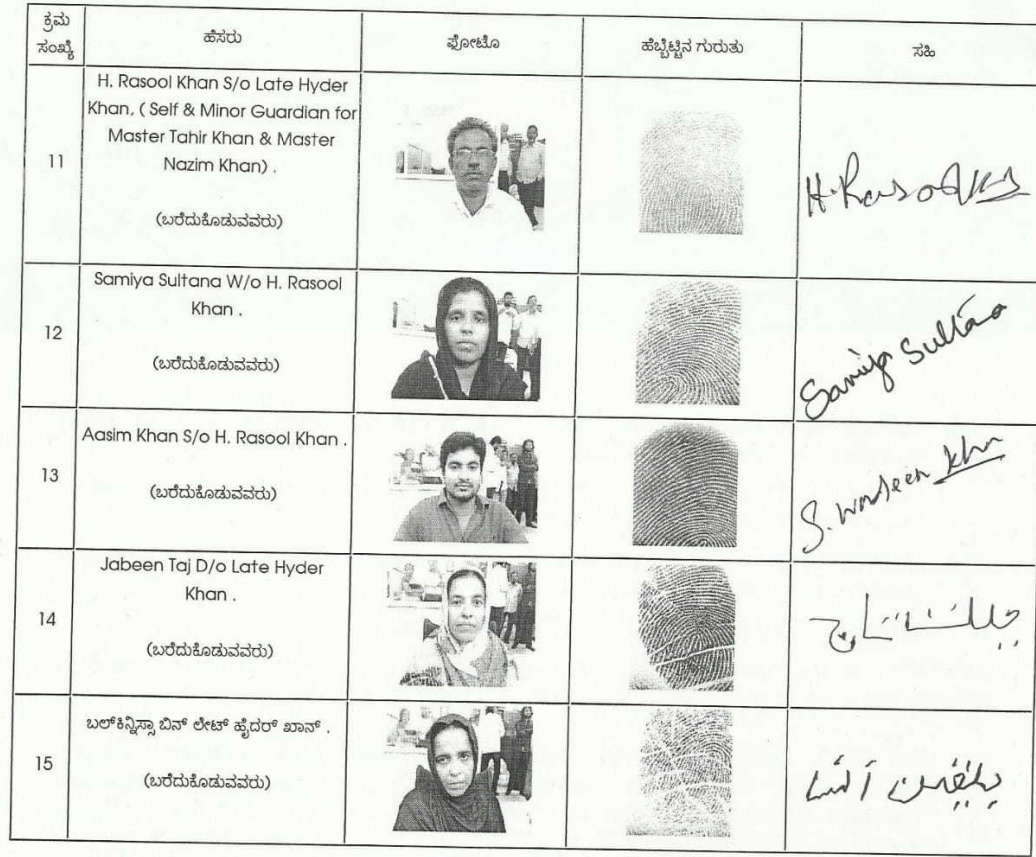 ಕ್ರಮ
ಸಂಖ್ಯೆ
ಹೆಸರು
ಫೋಟೊ
ಹೆಬ್ಬೆಟ್ಟಿನ ಗುರುತು
ಸಹಿ
11
H. Rasool Khan S/o Late Hyder
Khan, ( Self & Minor Guardian for
Master Tahir Khan & Master
Nazim Khan) .
(ಬರೆದುಕೊಡುವವರು)
12
Samiya Sultana W/o H. Rasool
Khan .
(ಬರೆದುಕೊಡುವವರು)
Samiya Sultana
13
Aasim Khan S/o H. Rasool Khan .
(ಬರೆದುಕೊಡುವವರು)
14
Jabeen Taj D/o Late Hyder
Khan .
(ಬರೆದುಕೊಡುವವರು)
15
ಬಲ್‌ಕಿನ್ನಿಸ್ಸಾ ಬಿನ್ ಲೇಟ್ ಹೈದರ್ ಖಾನ್ .
(ಬರೆದುಕೊಡುವವರು)